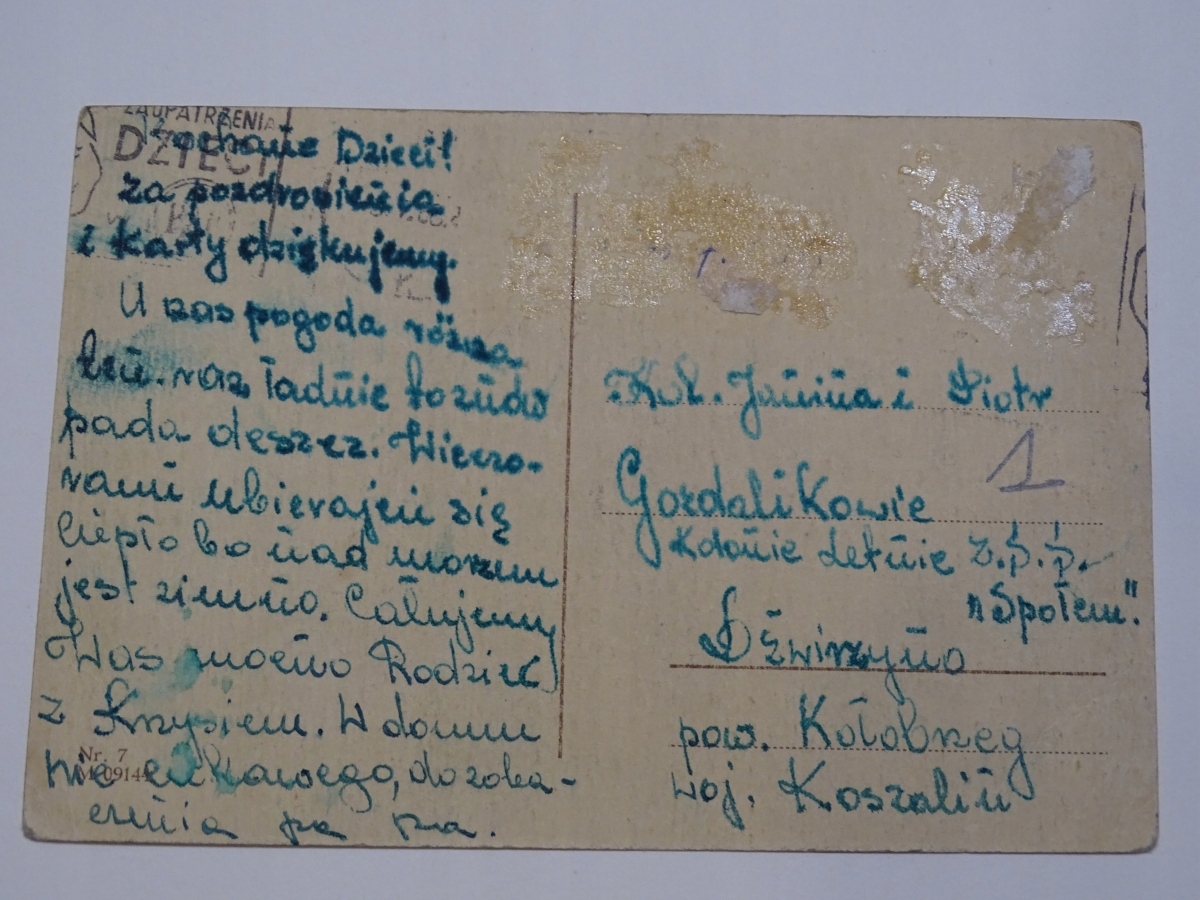 ZAOPATRZENIA
DZIECI
Kochane Dzieci!
za pozdrowienia
i karty dziękujemy.
U nas pogoda różna
raz ładnie to znów
pada deszcz. Wieczo-
rami ubierajcie się
ciepło bo nad morzem
jest zimno. Całujemy
Was mocno Rodzice
z Krzysiem. W domu
nic ciekawego, do zoba-
czenia pa pa.
Nr. 7
Kol. Janina i Piotr
1
Gozdalikowie
Kolonie Letnie Z.S.S.
"Społem".
Dźwirzyno
pow. Kołobrzeg
woj. Koszalin